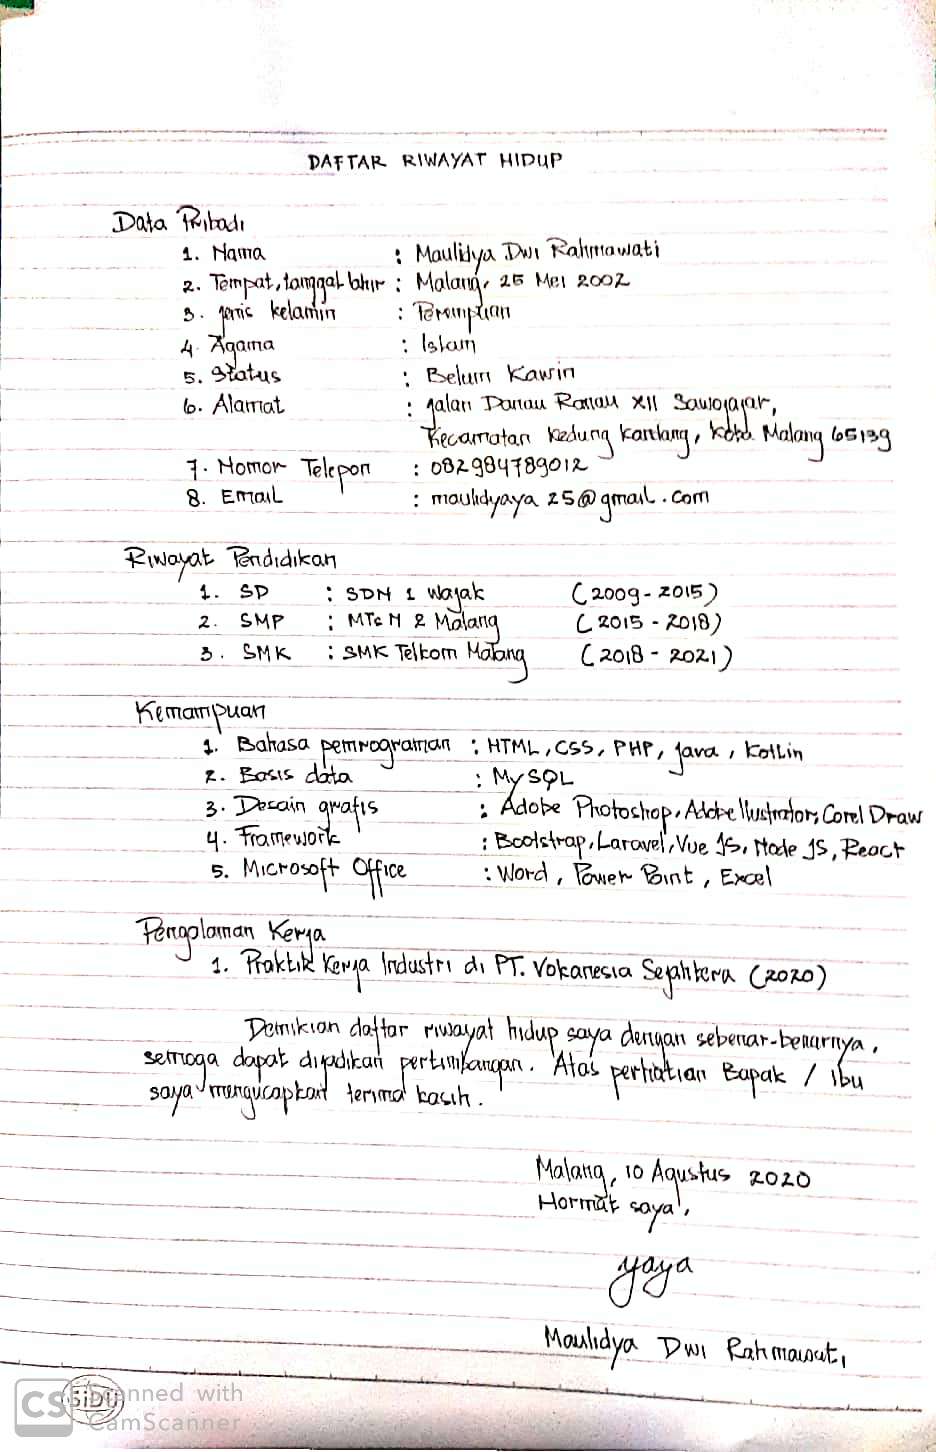 DAFTAR RIWAYAT HIDUP
Data Pribadi
1. Nama : Maulidya Dwi Rahmawati
2. Tempat, tanggal lahir : Malang, 25 Mei 2002
3. jenis kelamin : Perempuan
4. Agama : Islam
5. Status : Belum Kawin
6. Alamat : jalan Danau Ranau XII Sawojajar,
Kecamatan Kedung Kandang, Kota Malang 65139
7. Nomor Telepon : 082984789012
8. Email : maulidyaya25@gmail.com
Riwayat Pendidikan
1. SD : SDN 1 Wajak (2009-2015)
2. SMP : MTsN 2 Malang (2015 - 2018)
3. SMK : SMK Telkom Malang (2018 - 2021)
Kemampuan
1. Bahasa pemrograman : HTML, CSS, PHP, java, Kotlin
2. Basis data : MySQL
3. Desain grafis : Adobe Photoshop, Adobe Ilustrator, Corel Draw
4. Framework : Bootstrap, Laravel, Vue JS, Node JS, React
5. Microsoft Office : Word, Power Point, Excel
Pengalaman Kerja
1. Praktik Kerja Industri di PT. Vokanesia Sejahtera (2020)
Demikian daftar riwayat hidup saya dengan sebenar-benarnya,
semoga dapat dijadikan pertimbangan. Atas perhatian Bapak / ibu
saya mengucapkan terima kasih.
Malang, 10 Agustus 2020
Hormat saya,
yaya
Maulidya Dwi Rahmawati
SiDU
CS Scanned with
CamScanner